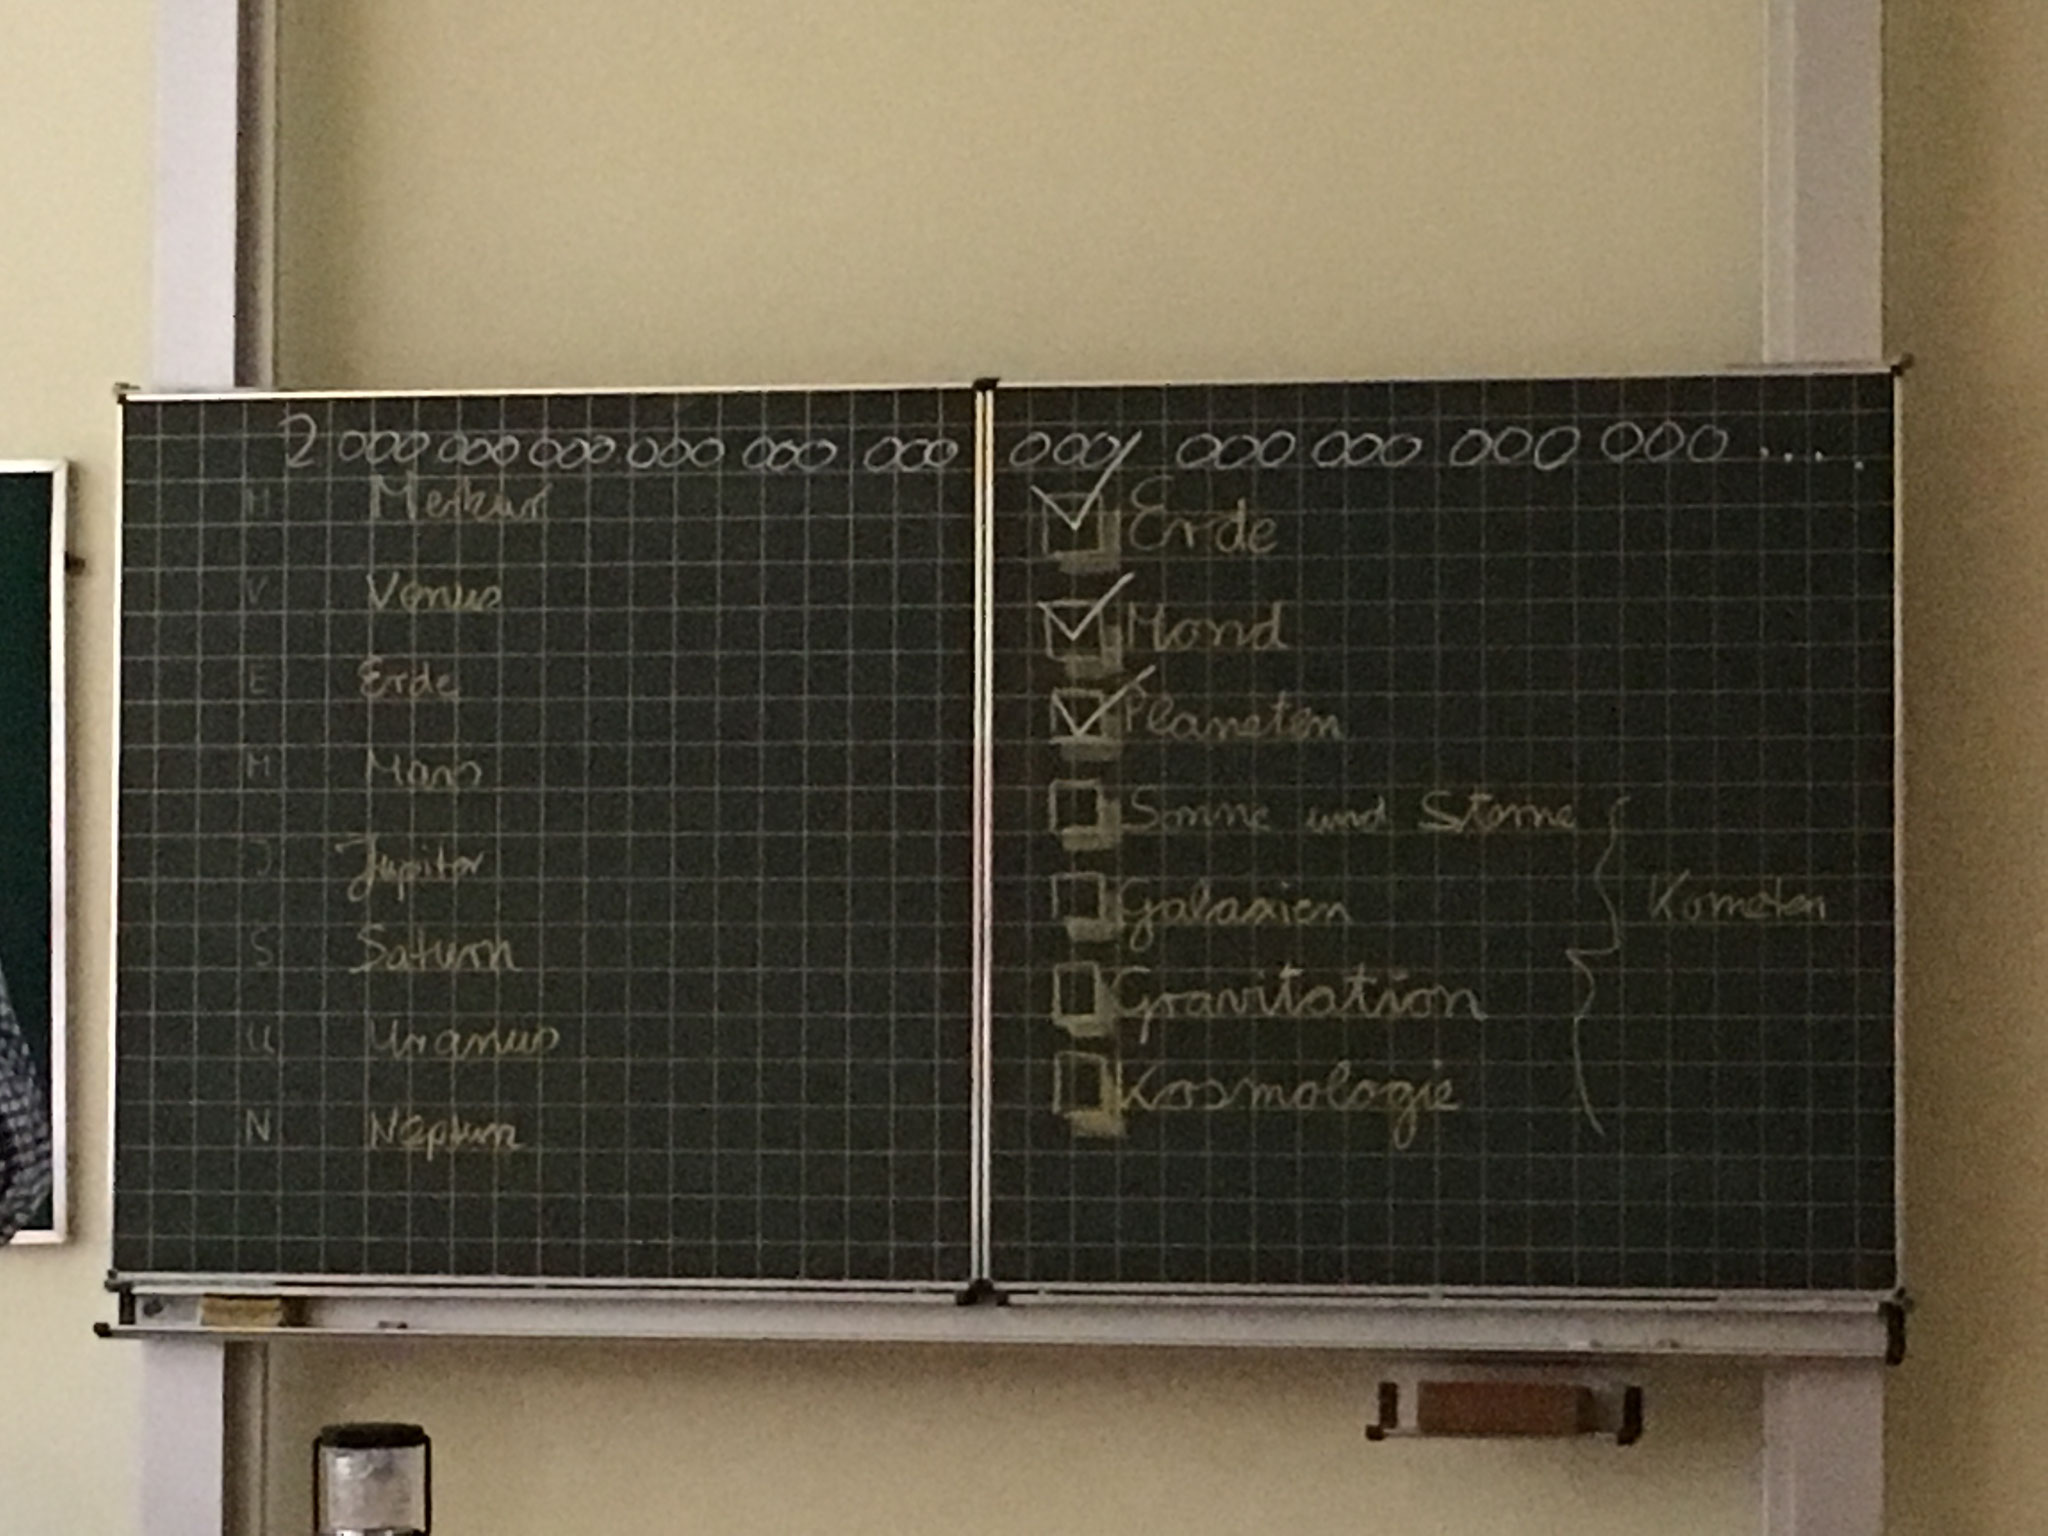 2 000 000 000 000 000 000 000 000 000 000 000 ....
M Merkur
V Venus
E Erde
M Mars
J Jupiter
S Saturn
U Uranus
N Neptun
Erde
Mond
Planeten
Sonne und Sterne
Galaxien
Gravitation
Kosmologie
Kometen